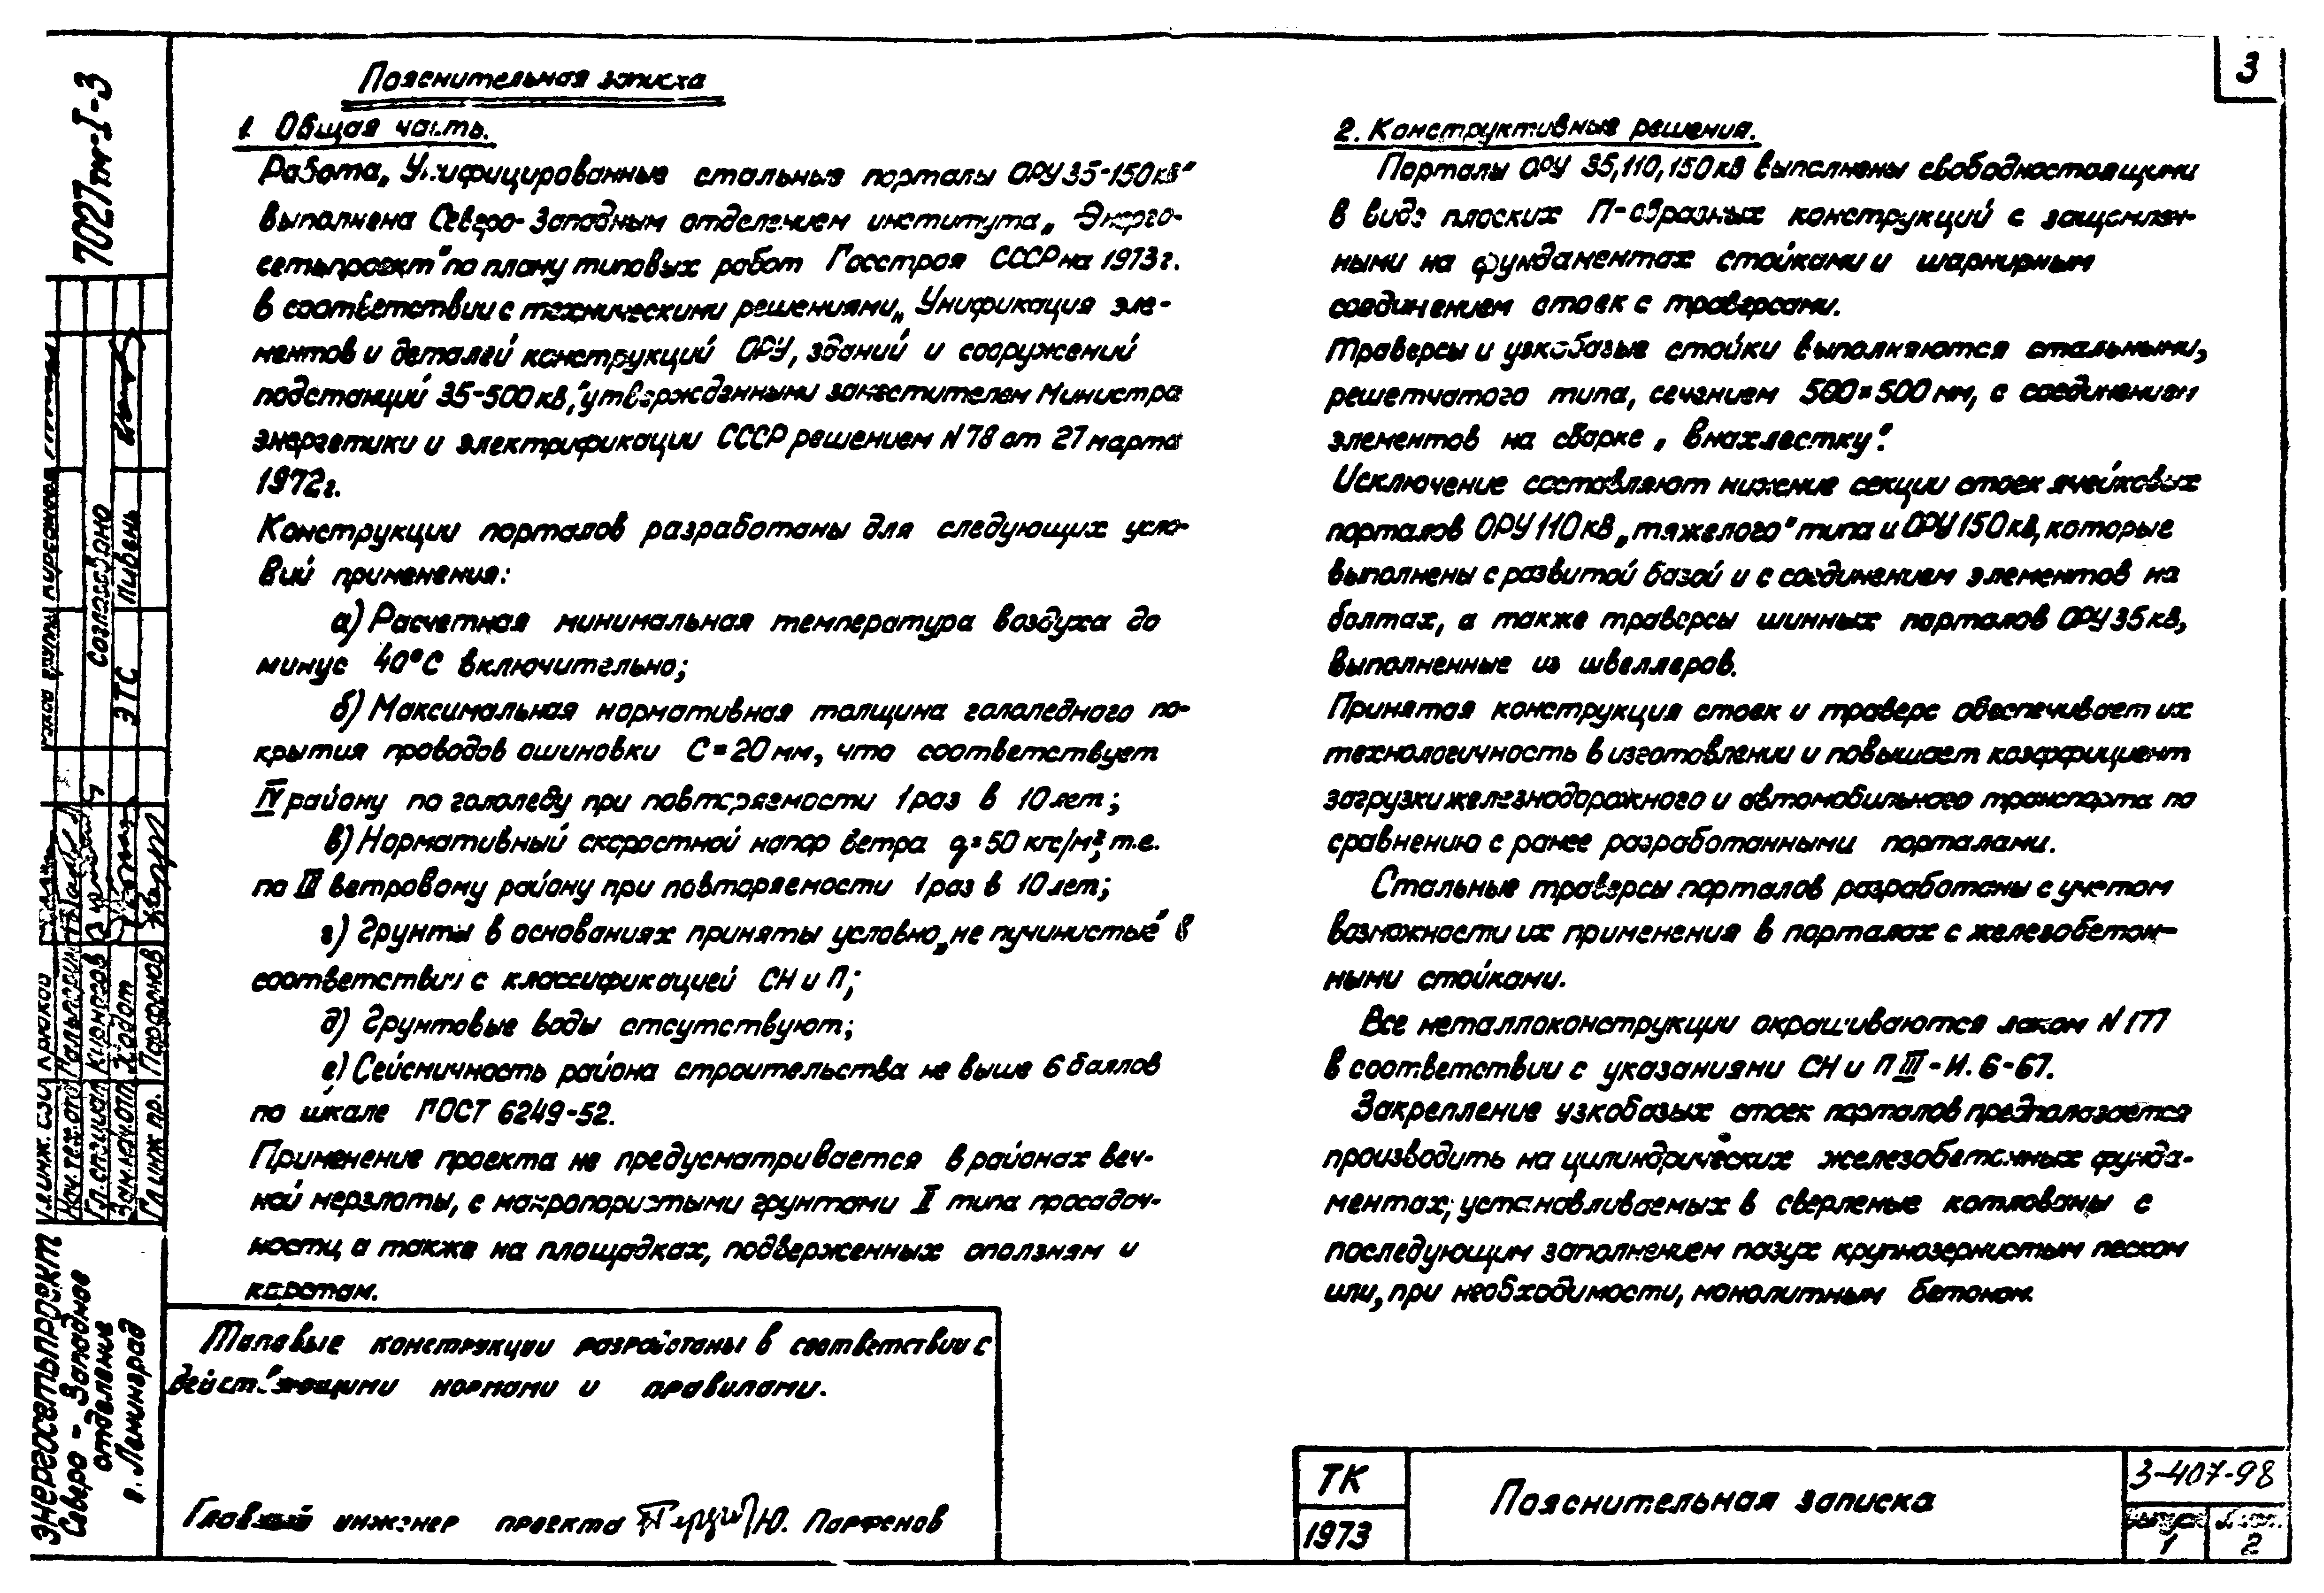 3
7027тм-I-3
Пояснительная записка
1. Общая часть.
Работа „Унифицированные стальные порталы ОРУ 35-150кв"
выполнена Северо-Западным отделением института „Энерго-
сетьпроект" по плану типовых работ Госстроя СССР на 1973г.
в соответствии с техническими решениями „Унификация эле-
ментов и деталей конструкций ОРУ, зданий и сооружений
подстанций 35-500кв," утвержденными заместителем Министра
энергетики и электрификации СССР решением N78 от 27 марта
1972г.
Конструкции порталов разработаны для следующих усло-
вий применения:
а) Расчетная минимальная температура воздуха до
минус 40°С включительно;
б) Максимальная нормативная толщина гололедного по-
крытия проводов ошиновки С=20мм, что соответствует
IV району по гололеду при повторяемости 1раз в 10лет;
в) Нормативный скоростной напор ветра q=50 кгс/м², т.е.
по III ветровому району при повторяемости 1раз в 10лет;
г) Грунты в основаниях приняты условно „не пучинистые" в
соответствии с классификацией СН и П;
д) Грунтовые воды отсутствуют;
е) Сейсмичность района строительства не выше 6 баллов
по шкале ГОСТ 6249-52.
Применение проекта не предусматривается в районах веч-
ной мерзлоты, с макропористыми грунтами II типа просадоч-
ности, а также на площадках, подверженных оползням и
карстам.
Типовые конструкции разработаны в соответствии с
действующими нормами и правилами.
Главный инженер проекта Ю. Парфенов
2. Конструктивные решения.
Порталы ОРУ 35,110,150кв выполнены свободностоящими
в виде плоских П-образных конструкций с защемлен-
ными на фундаментах стойками и шарнирным
соединением стоек с траверсами.
Траверсы и узкобазые стойки выполняются стальными,
решетчатого типа, сечением 500×500мм, с соединением
элементов на сварке „внахлестку".
Исключение составляют нижние секции стоек ячейковых
порталов ОРУ 110кв „тяжелого" типа и ОРУ 150кв, которые
выполнены с развитой базой и с соединением элементов на
болтах, а также траверсы шинных порталов ОРУ 35кв,
выполненные из швеллеров.
Принятая конструкция стоек и траверс обеспечивает их
технологичность в изготовлении и повышает коэффициент
загрузки железнодорожного и автомобильного транспорта по
сравнению с ранее разработанными порталами.
Стальные траверсы порталов разработаны с учетом
возможности их применения в порталах с железобетон-
ными стойками.
Все металлоконструкции окрашиваются лаком N177
в соответствии с указаниями СН и П III-И.6-67.
Закрепление узкобазых стоек порталов предполагается
производить на цилиндрических железобетонных фунда-
ментах, устанавливаемых в сверленые котлованы с
последующим заполнением пазух крупнозернистым песком
или, при необходимости, монолитным бетоном.
ТК
1973
Пояснительная записка
3-407-98
выпуск
1
лист
2
Согласовано
ЭТС Пивень
Гл.инж. СЗО Крюков
Нач.тех.отд
Гл.специал
Зам.нач.отд Ходот
Гл.инж.пр. Парфенов
Энергосетьпроект
Северо-Западное
отделение
г. Ленинград